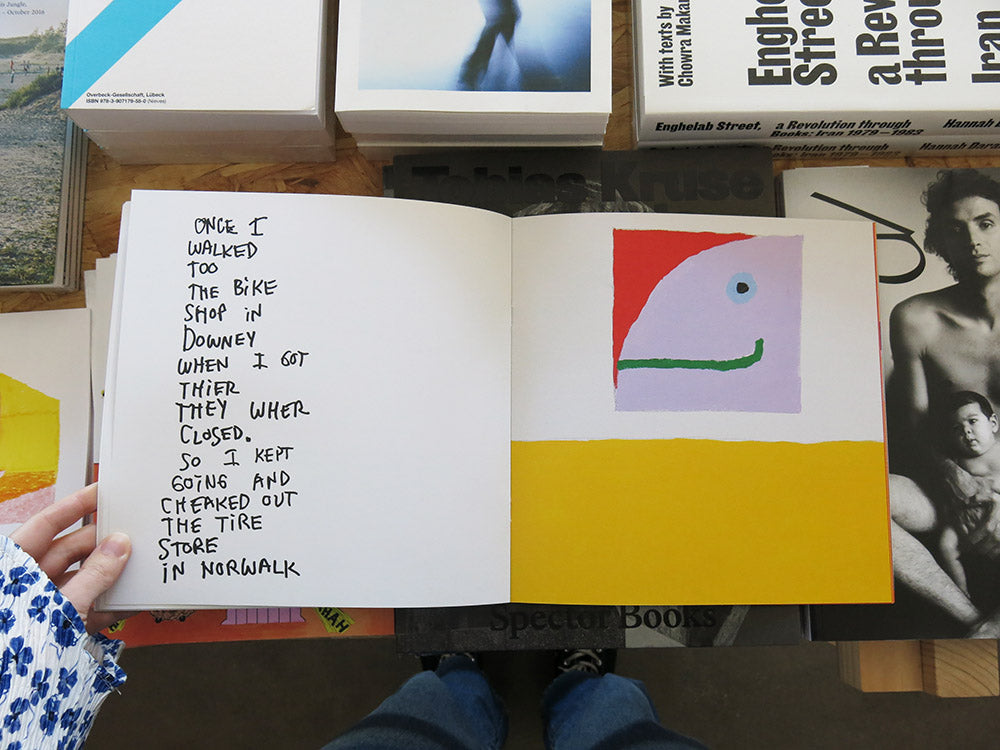 is Jungle,
– October 2016
Overbeck-Gesellschaft, Lübeck
ISBN 978-3-907179-58-0 (Nieves)
With texts by
Chowra Makar
Enghe
Stree
a Rev
throu
Iran
Enghelab Street, a Revolution through
Books: Iran 1979–1983 Hannah
Revolution through
Books: Iran 1979–1983 Hannah Dara
Tobias Kruse
ONCE I
WALKED
TOO
THE BIKE
SHOP IN
DOWNEY
WHEN I GOT
THIER
THEY WHER
CLOSED.
SO I KEPT
GOING AND
CHEAKED OUT
THE TIRE
STORE
IN NORWALK
Spector Books